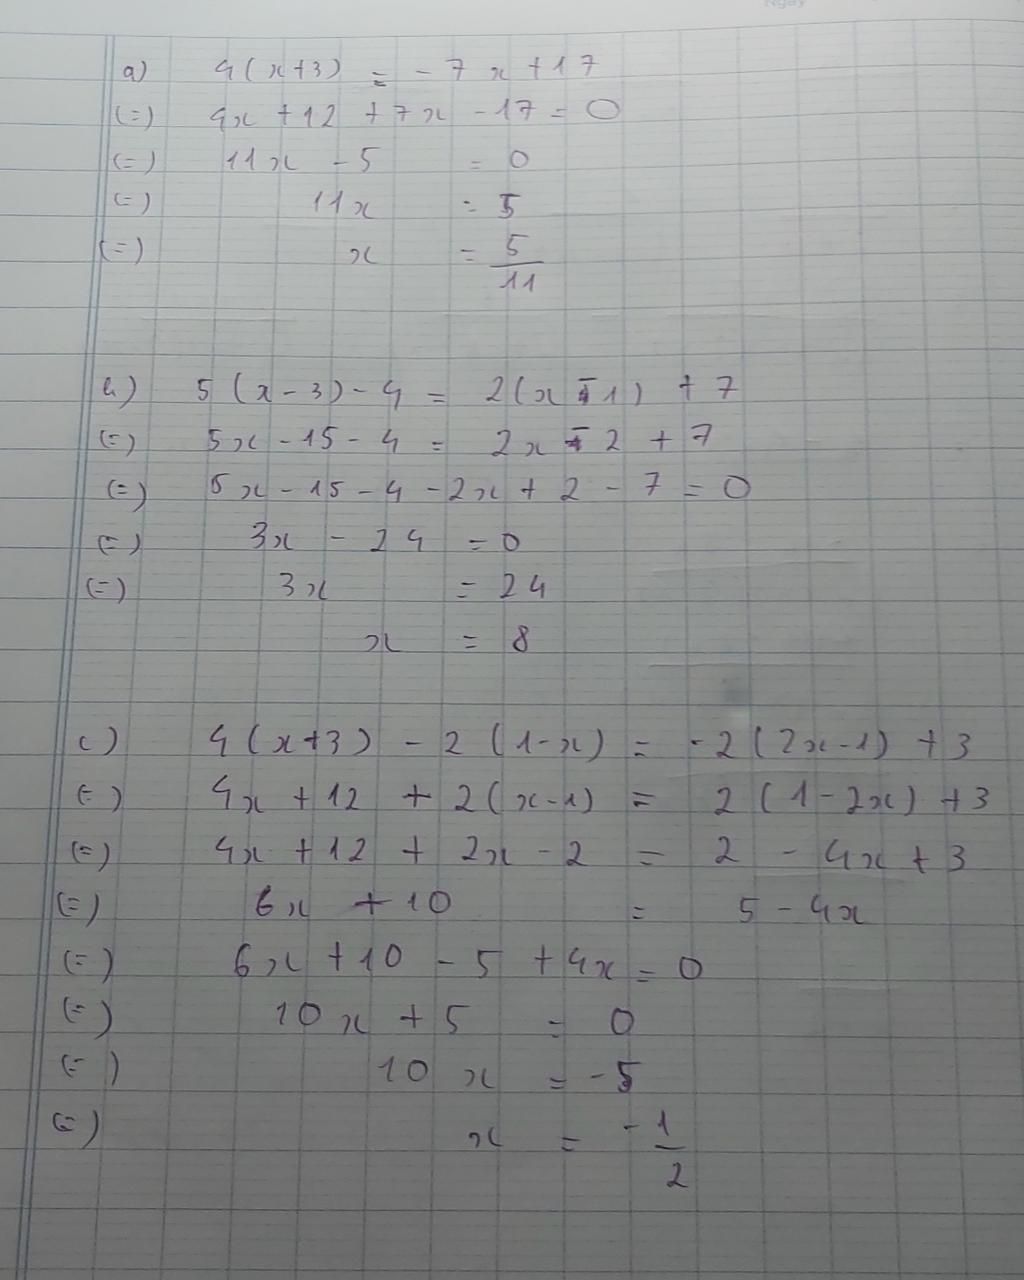 a) 4(x+3) = -7x+17
(=) 4x+12+7x-17=0
(=) 11x-5 = 0
(=) 11x = 5
(=) x = 5/11
b) 5(x-3)-4 = 2(x-1)+7
(=) 5x-15-4 = 2x-2+7
(=) 5x-15-4-2x+2-7=0
(=) 3x-24 =0
(=) 3x = 24
x = 8
c) 4(x+3)-2(1-x) = -2(2x-1)+3
(=) 4x+12+2(x-1) = 2(1-2x)+3
(=) 4x+12+2x-2 = 2-4x+3
(=) 6x+10 = 5-4x
(=) 6x+10-5+4x=0
(=) 10x+5 = 0
(=) 10x = -5
(=) x = -1/2